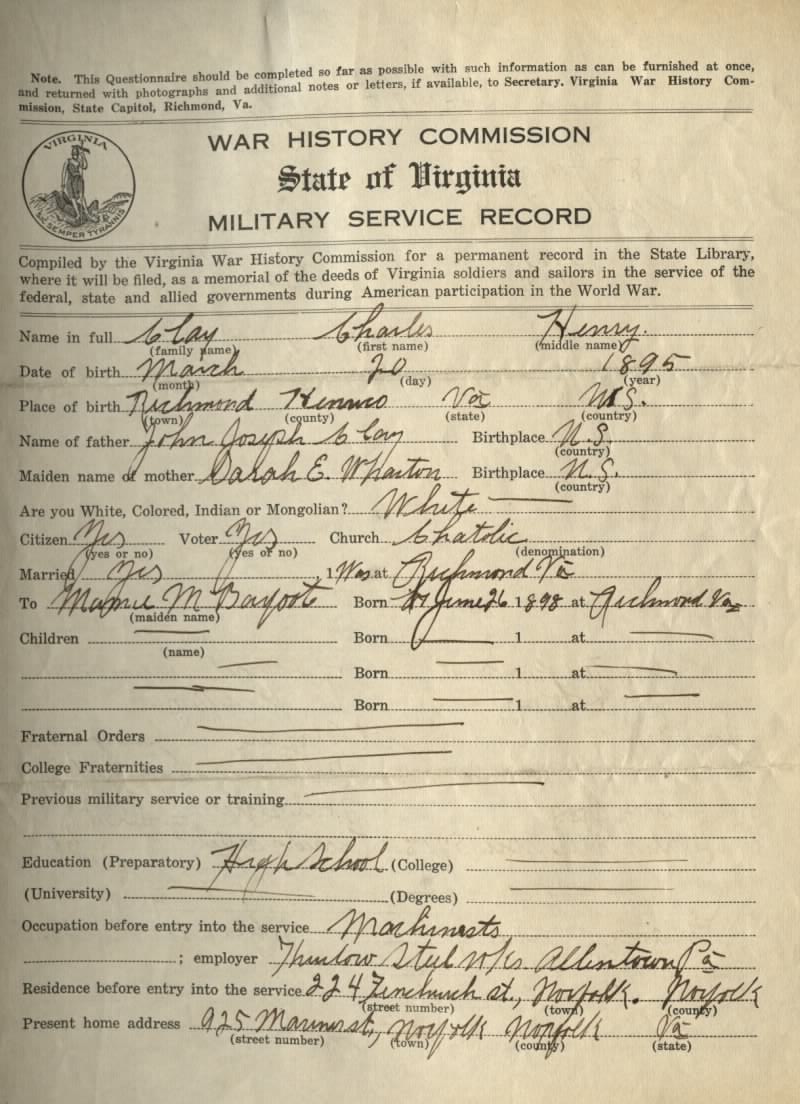 Note. This Questionnaire should be completed so far as possible with such information as can be furnished at once,
and returned with photographs and additional notes or letters, if available, to Secretary. Virginia War History Com-
mission, State Capitol, Richmond, Va.
VIRGINIA
SIC SEMPER TYRANNIS
WAR HISTORY COMMISSION
State of Virginia
MILITARY SERVICE RECORD
Compiled by the Virginia War History Commission for a permanent record in the State Library,
where it will be filed, as a memorial of the deeds of Virginia soldiers and sailors in the service of the
federal, state and allied governments during American participation in the World War.
Name in full Clay Charles Henry.
(family name) (first name) (middle name)
Date of birth March 20 1895
(month) (day) (year)
Place of birth Richmond Henrico Va U.S.
(town) (county) (state) (country)
Name of father John Joseph Clay Birthplace U.S.
(country)
Maiden name of mother Sarah E. Wharton Birthplace U.S.
(country)
Are you White, Colored, Indian or Mongolian? White
Citizen Yes Voter Yes Church Chatolic
(yes or no) (yes or no) (denomination)
Married Yes, 1 at Richmond Va
To Mamie M Born June 26 1898 at Richmond Va
(maiden name)
Children Born 1 at
(name)
Born 1 at
Born 1 at
Fraternal Orders
College Fraternities
Previous military service or training
Education (Preparatory) High School (College)
(University) (Degrees)
Occupation before entry into the service Machinests
; employer Steel Wks Allentown Pa
Residence before entry into the service 224 Fenchurch st., Norfolk. Norfolk
(street number) (town) (county)
Present home address 925 Norfolk Norfolk Va
(street number) (town) (county) (state)